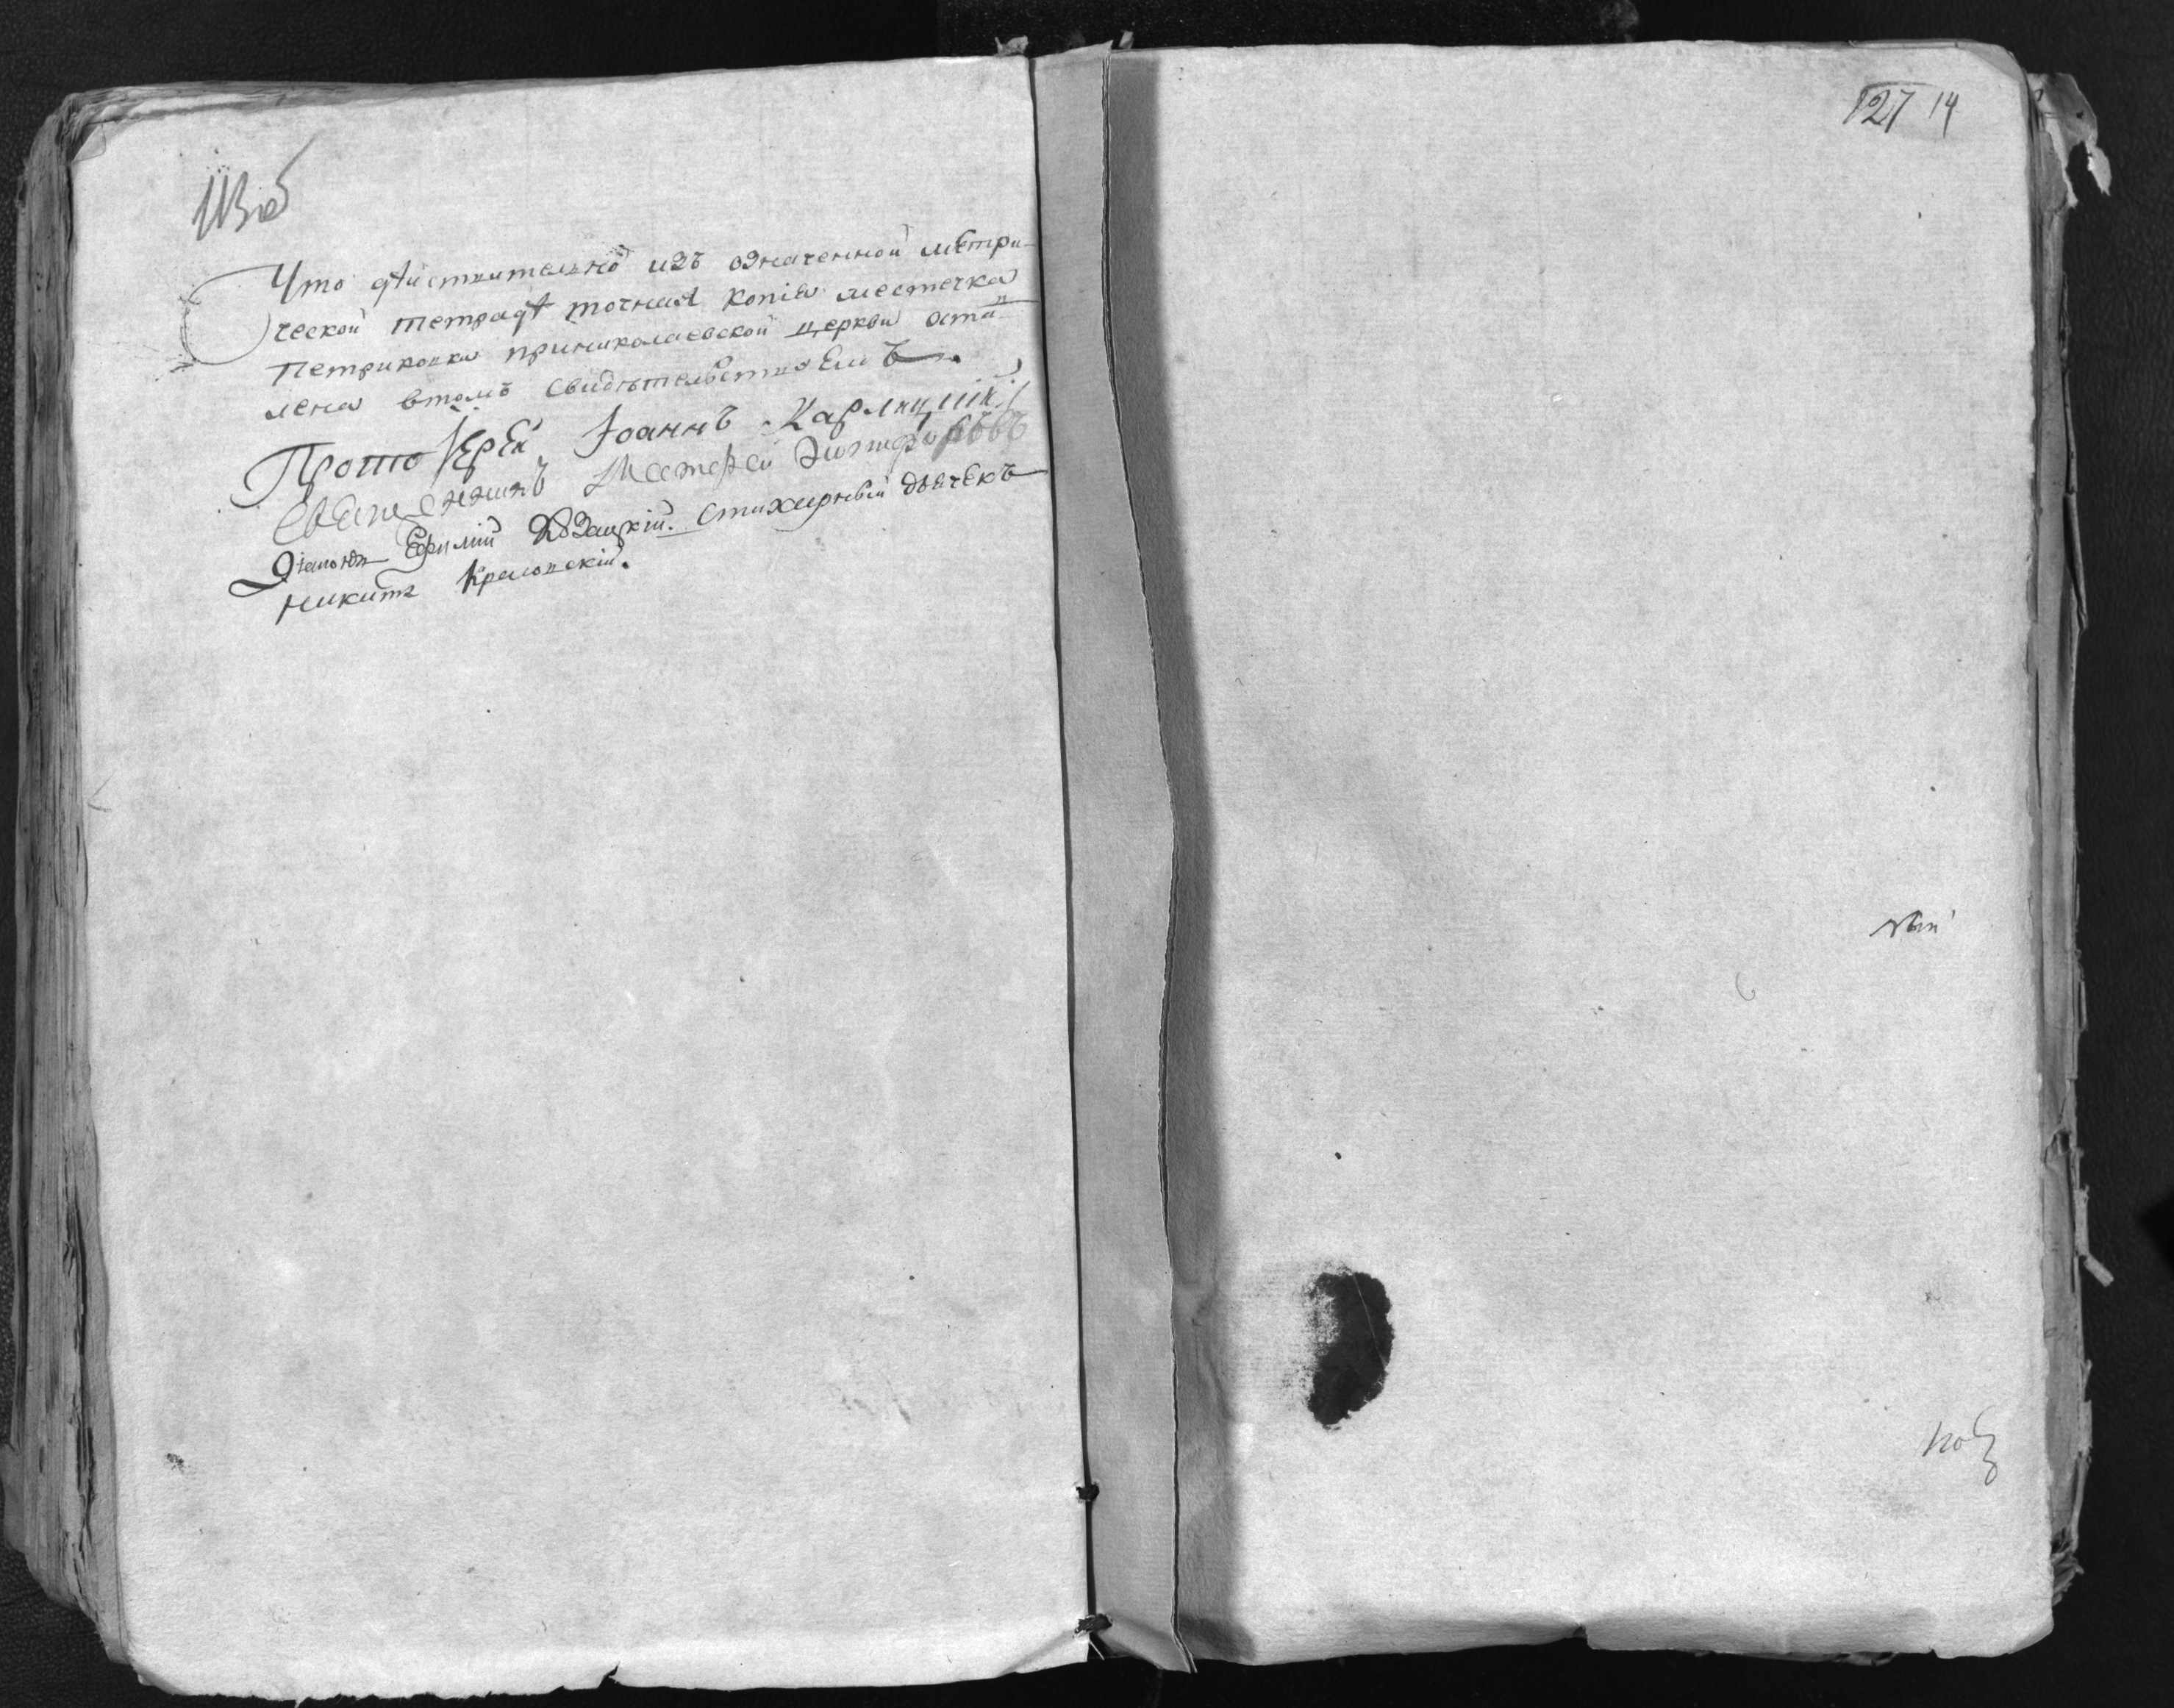 113 об
Что дѣйствително изъ означенной метри-
ческой тетрадѣ точная копіа местечка
Петриковки приниколаевской церкви остав-
лена втомъ свидѣтелствуемъ.
Протоіерей Іоаннъ
Священникъ
Діаконъ Ефимій стихарный дьячекъ
Никита
127 14
ный